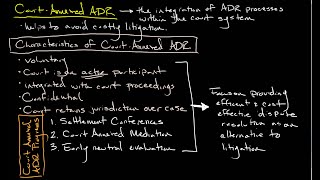 Court-Annexed ADR → the integration of ADR processes
within the court system
- helps to avoid costly litigation.
Characteristics of Court-Annexed ADR
• voluntary
• Court is an active participant
• integrated with court proceedings
• Confidential
• Court retains jurisdiction over case
Court Annexed
ADR Processes
1. Settlement Conferences
2. Court Annexed Mediation
3. Early neutral evaluation
Focus on providing
efficient & cost
effective dispute
resolution as an
alternative to
litigation